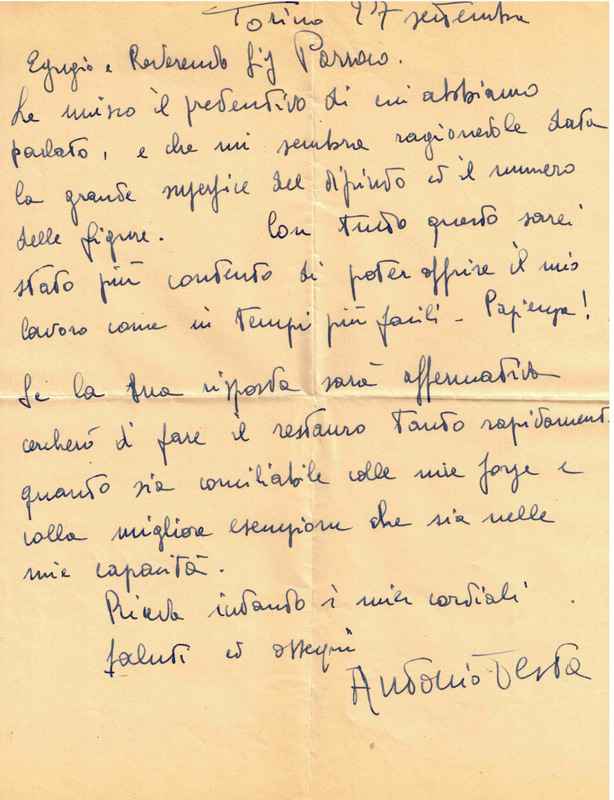 Torino 27 settembre
Egregio e Reverendo Sig Parroco.
Le unisco il preventivo di cui abbiamo
parlato, e che mi sembra ragionevole data
la grande superfice del dipinto ed il numero
delle figure. Con tutto questo sarei
stato più contento di poter offrire il mio
lavoro come in tempi più facili - Pazienza!
Se la Sua risposta sarà affermativa
cercherò di fare il restauro tanto rapidament
quanto sia conciliabile colle mie forze e
colla migliore esecuzione che sia nelle
mie capacità.
Riceva intanto i miei cordiali
saluti ed ossequi
Antonio Testa